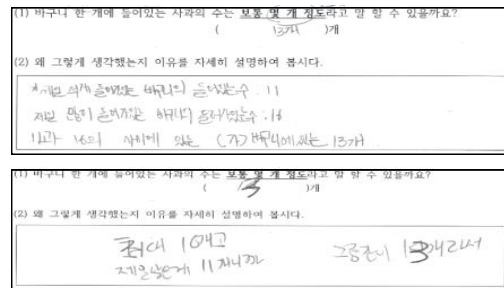 (1) 바구니 한 개에 들어있는 사과의 수는 보통 몇 개 정도라고 말 할 수 있을까요?
( 13개 )개
(2) 왜 그렇게 생각했는지 이유를 자세히 설명하여 봅시다.
제일 적게 들어있는 바구니의 들어있는수 : 11
제일 많이 들어있는 바구니 들어있는수 : 16
11과 16의 사이에 있는 (가) 바구니에 있는 13개
(1) 바구니 한 개에 들어있는 사과의 수는 보통 몇 개 정도라고 말 할 수 있을까요?
( 13 )개
(2) 왜 그렇게 생각했는지 이유를 자세히 설명하여 봅시다.
최대 16개고
제일 낮은게 11개니까
그중간이 13개라서